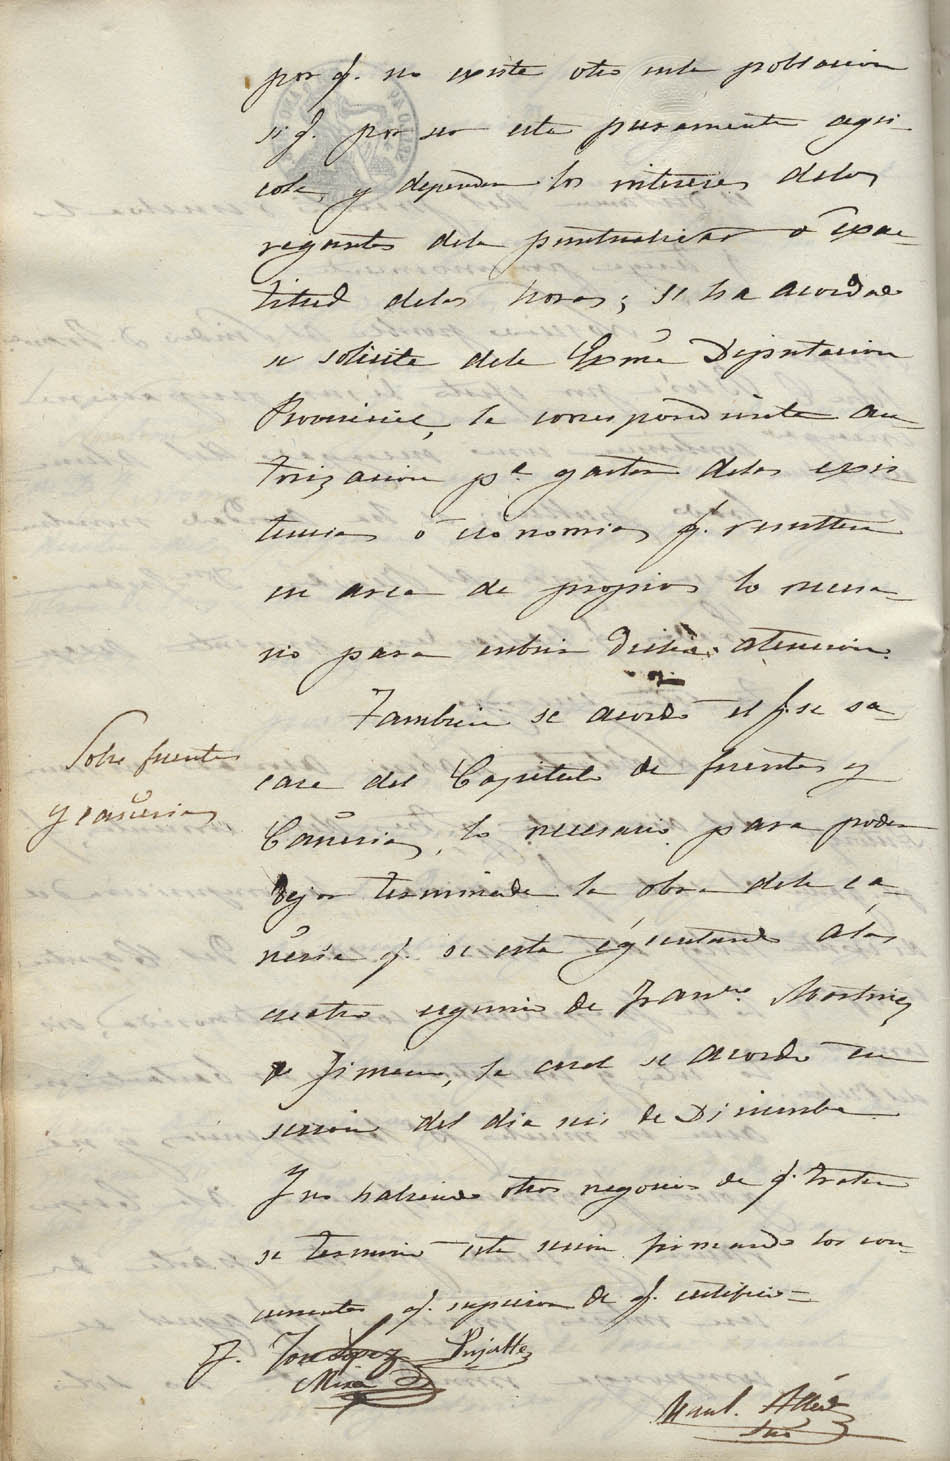 por q. no existe otro enla poblacion
si q. por ser esta puramente agri-
cola, y dependen los intereses delos
regantes dela puntualidad o exac-
titud delas horas; se ha acordado
se solicite dela Exma Diputacion
Provincial, la correspondiente au-
torizacion pa. gastar delas exis
tencias ó economias q. resulten
en arca de propios lo necesa-
rio para cubrir dicha atencion.
Tambien se acordó el q. se sa-
Sobre fuentes
y cañerias
case del Capitulo de fuentes y
Cañerias, lo necesario para poder
dejar terminada la obra dela ca-
ñeria q. se está ejecutando álas
cuatro esquinas de Franco. Martinez
de Jimeno, la cual se acordó en
sesion del dia seis de Diciembre
Y no habiendo otros negocios de q. tratar
se terminó esta sesion firmando los con-
currentes q. supieron de q. certifico=
J. José Lopez Pujalte
Mira
Manl. Alled
Srio